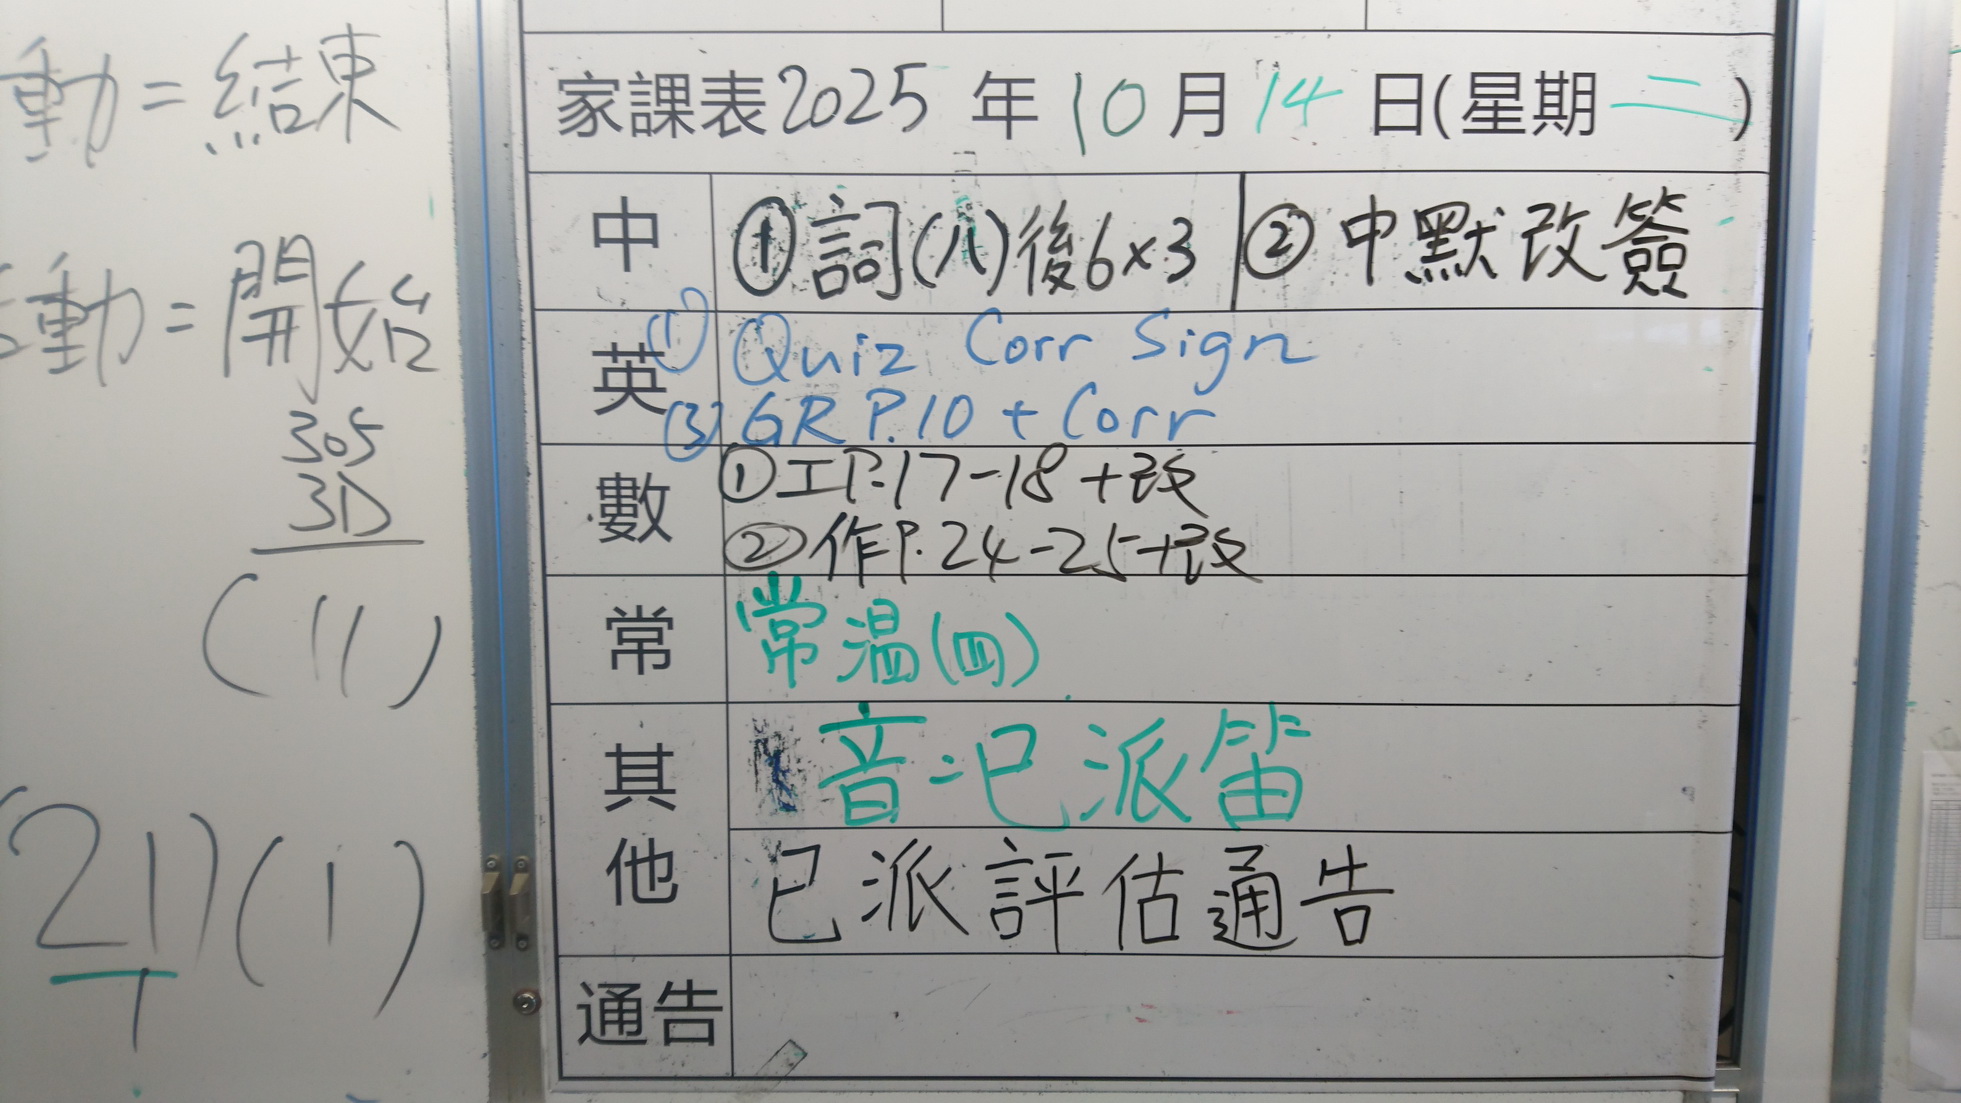 動=結束
動=開始
305
3D
(11)
21)(1)
家課表2025年10月14日(星期二)
中 ①詞(八)後6x3 ②中默改簽
英 (1) Quiz Corr Sign
(3) GR P.10 + Corr
數 ①工P.17-18+改
②作P.24-25+改
常 常溫(四)
其他 音:已派笛
已派評估通告
通告